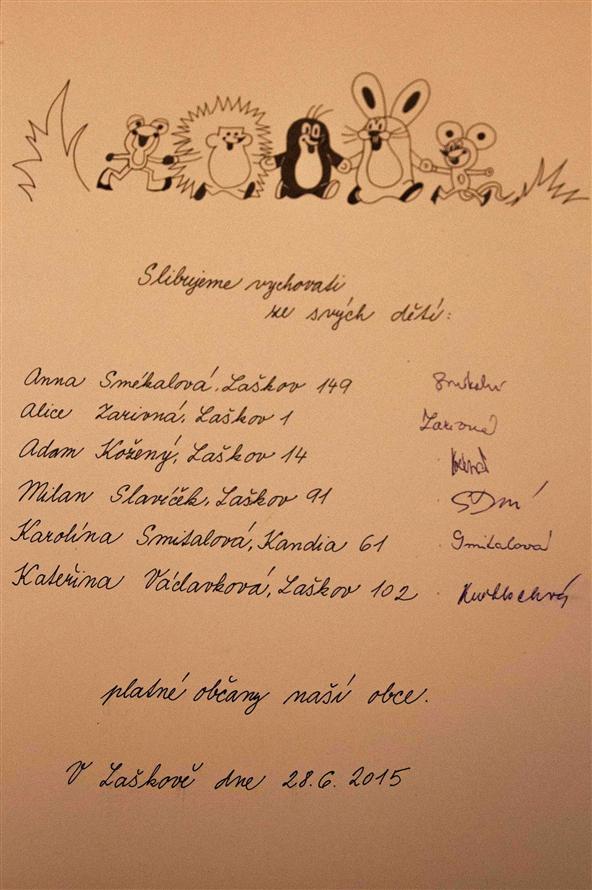 Slibujeme vychovati
ze svých dětí:
Anna Smékalová, Laškov 149
Alice Zarivná, Laškov 1 Zarivná
Adam Kožený, Laškov 14
Milan Slavíček, Laškov 91
Karolína Smitalová, Kandia 61 Smitalová
Kateřina Václavková, Laškov 102
platné občany naší obce.
V Laškově dne 28.6. 2015